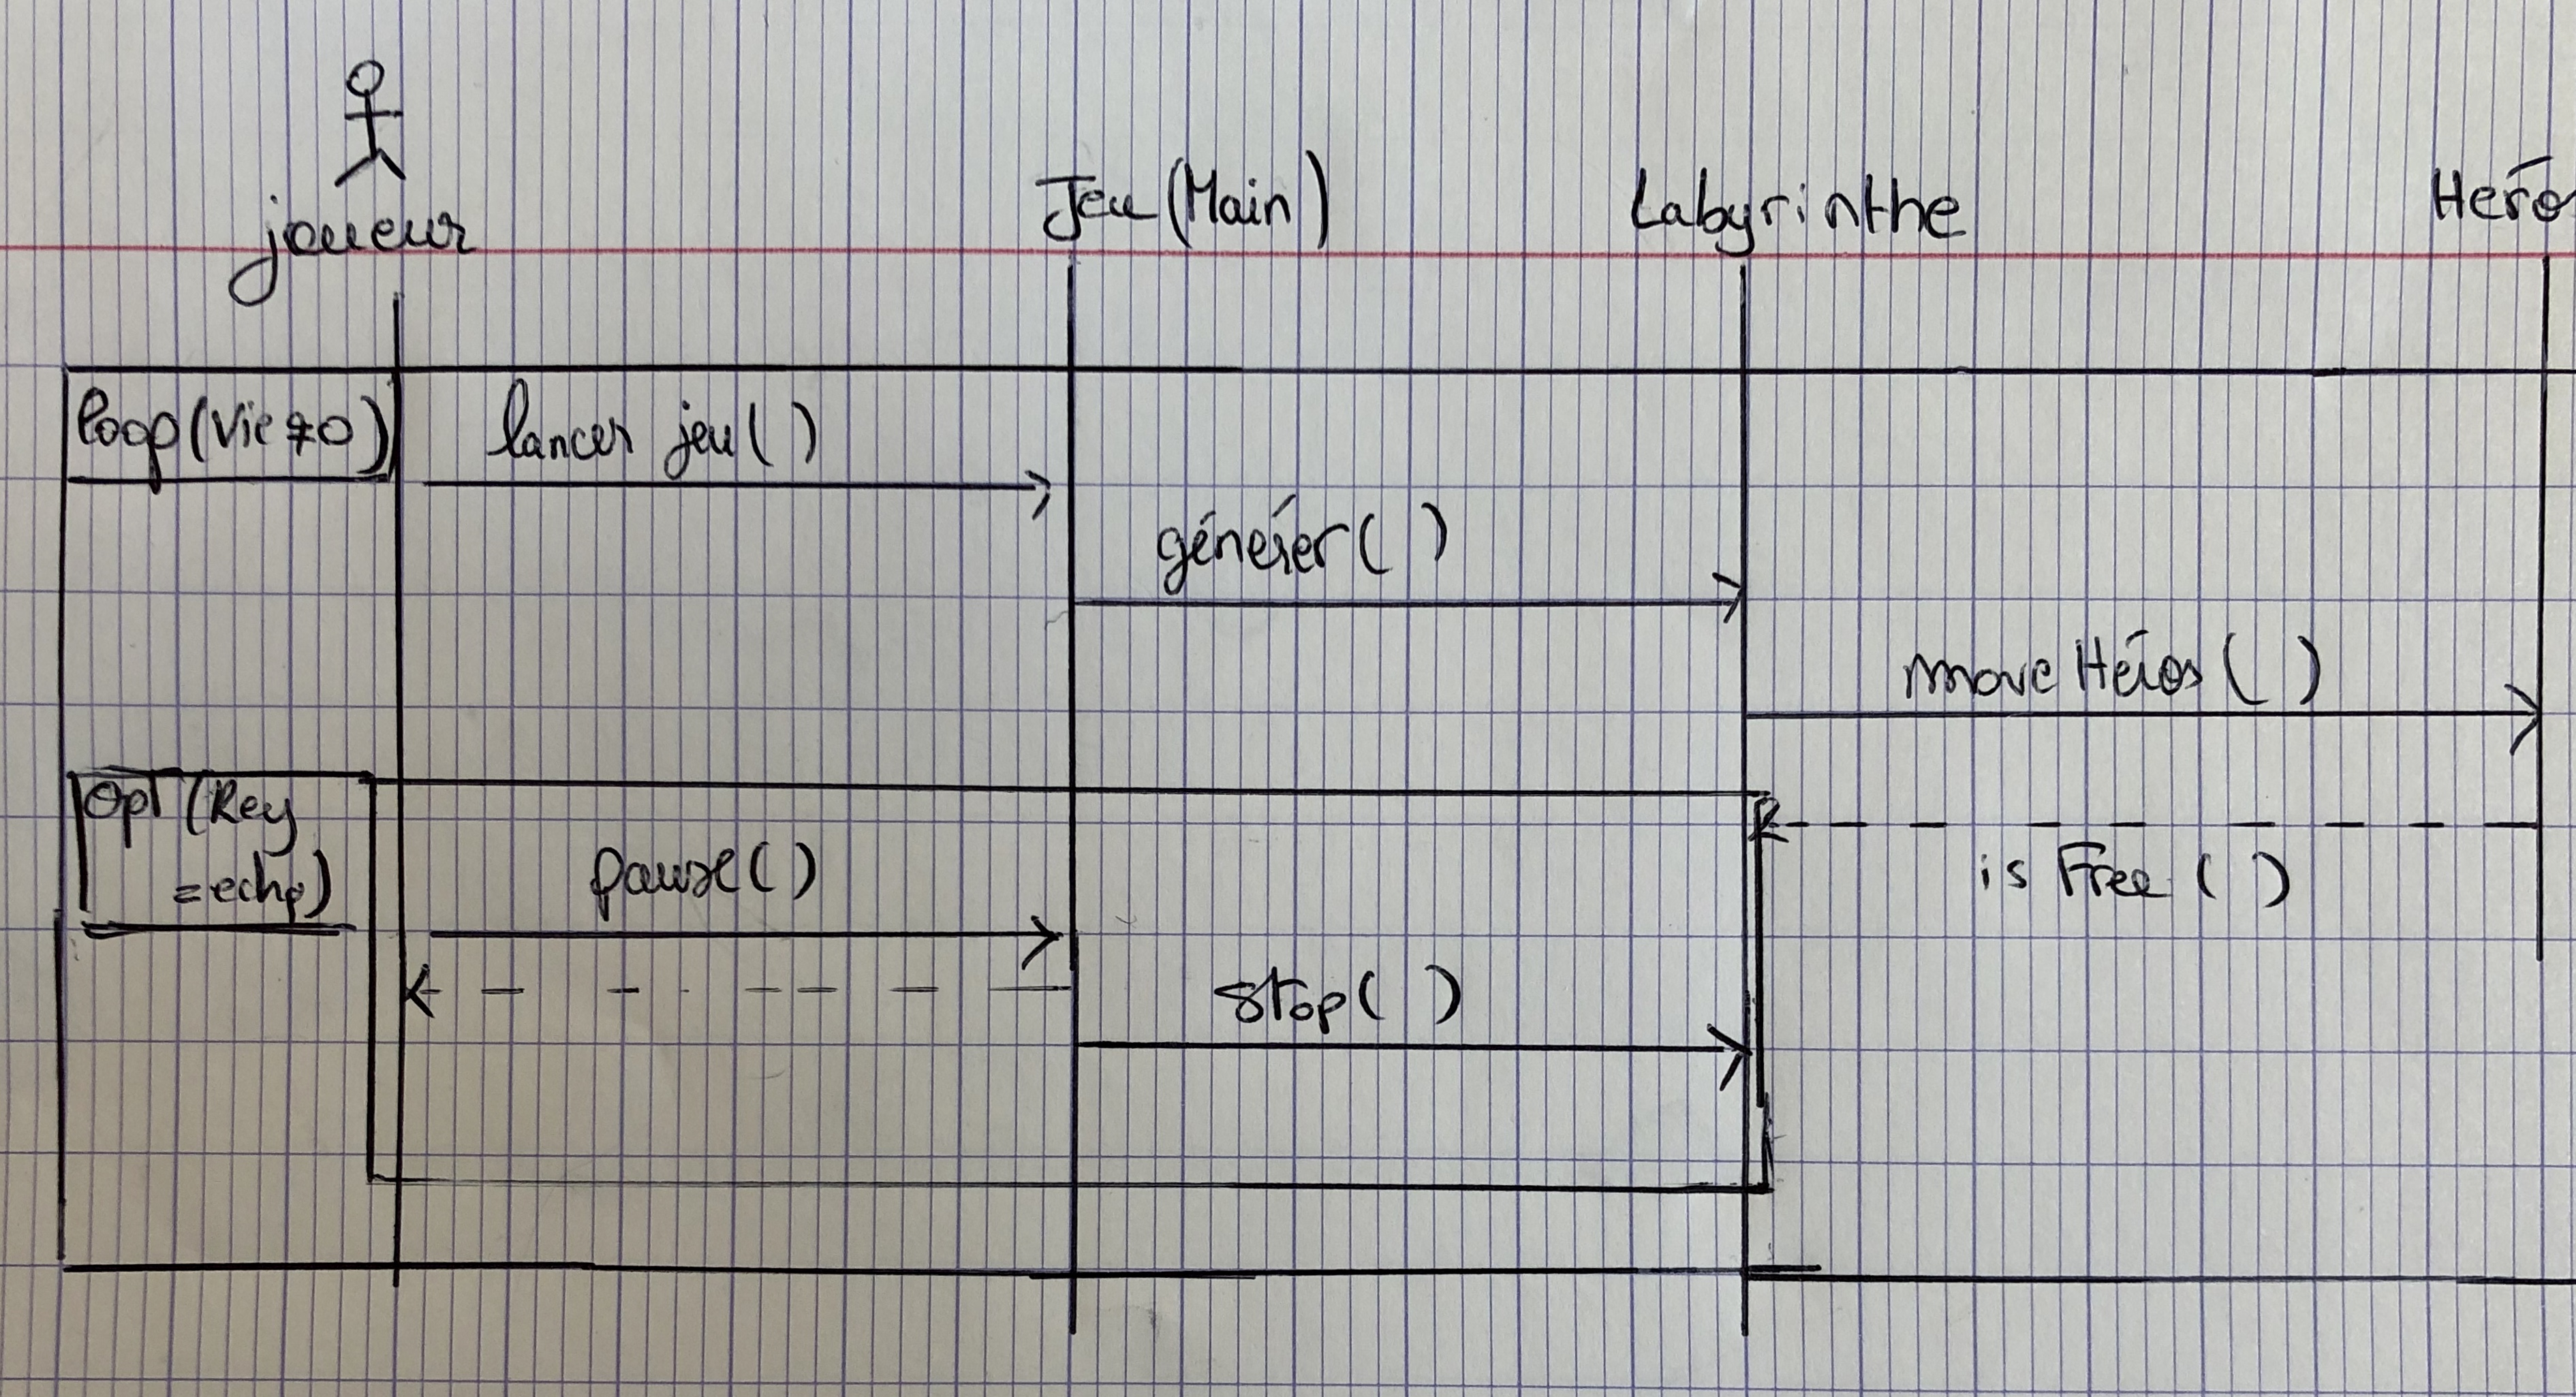 joueur
Jeu (Main)
Labyrinthe
Héro
loop (Vie ≠0)
lancer jeu ( )
générer ( )
move Héros ( )
opt (Key
=echp)
pause ( )
is Free ( )
stop ( )